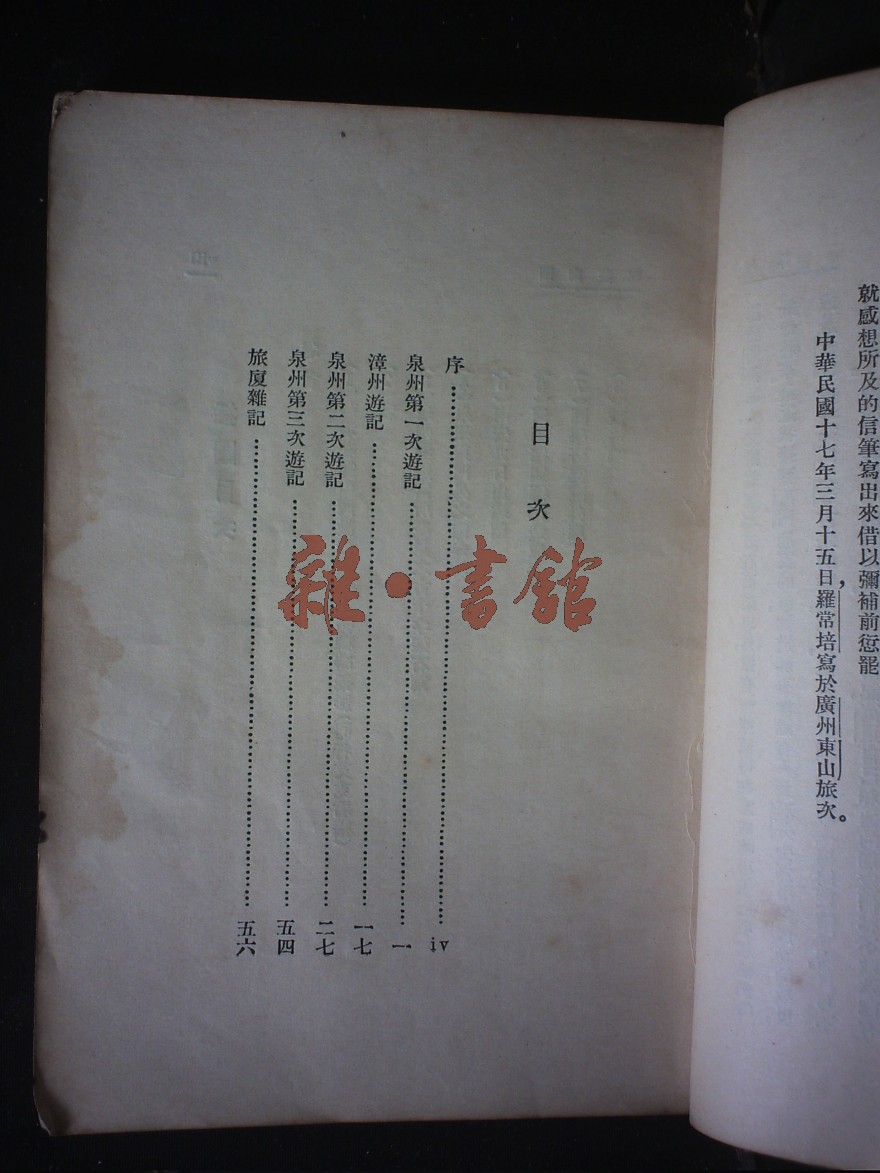 就感想所及的信筆寫出來借以彌補前愆罷
中華民國十七年三月十五日，羅常培寫於廣州東山旅次。
目次
序……iv
泉州第一次遊記……一
漳州遊記……一七
泉州第二次遊記……二七
泉州第三次遊記……五四
旅廈雜記……五六
雜•書館